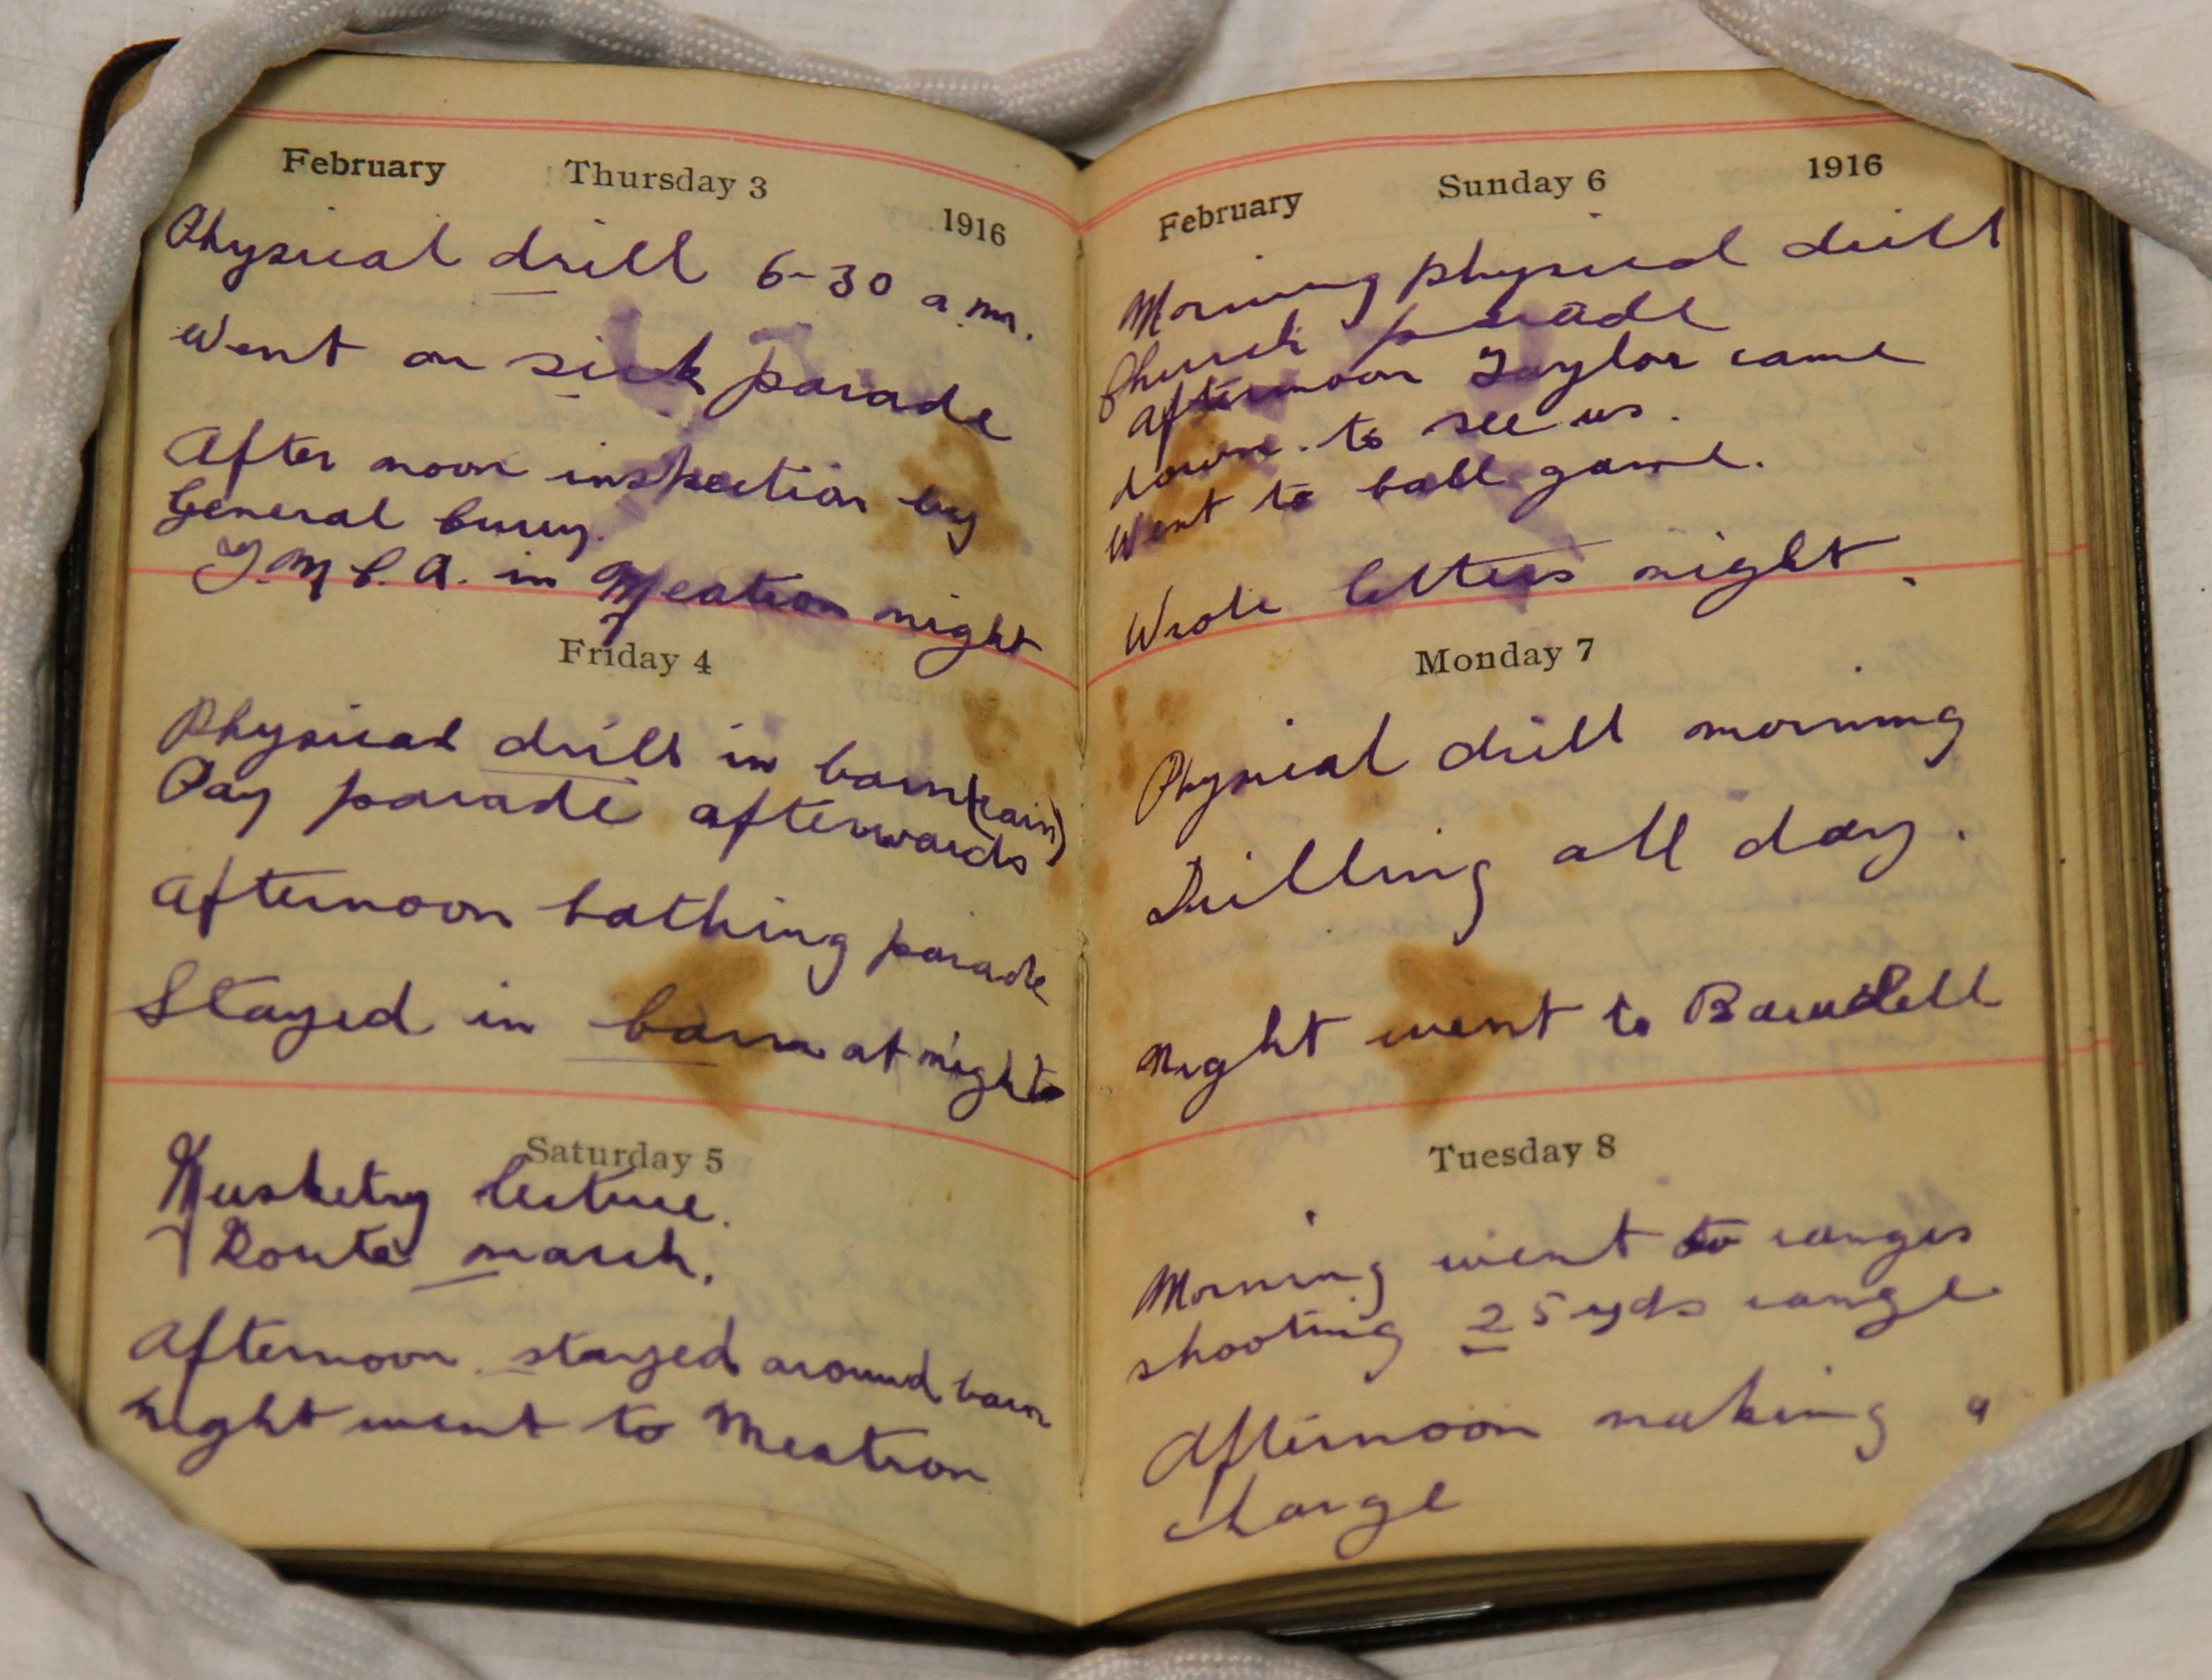 February Thursday 3 1916
Physical drill 6-30 a.m.
Went on sick parade
After noon inspection by
General
Y.M.C.A. in Meatron night
Friday 4
Physical drill in barn (rain)
Pay parade afterwards
Afternoon bathing parade
Stayed in barn at night
Saturday 5
Musketry lecture.
Route march.
Afternoon stayed around barn
Night went to Meatron
February Sunday 6 1916
Morning physical drill
Church parade
Afternoon Taylor came
down to see us.
Went to ball game.
Wrote letters night.
Monday 7
Physical drill morning
Drilling all day.
Night went to
Tuesday 8
Morning went to ranges
shooting 25 yds range
Afternoon making a
charge